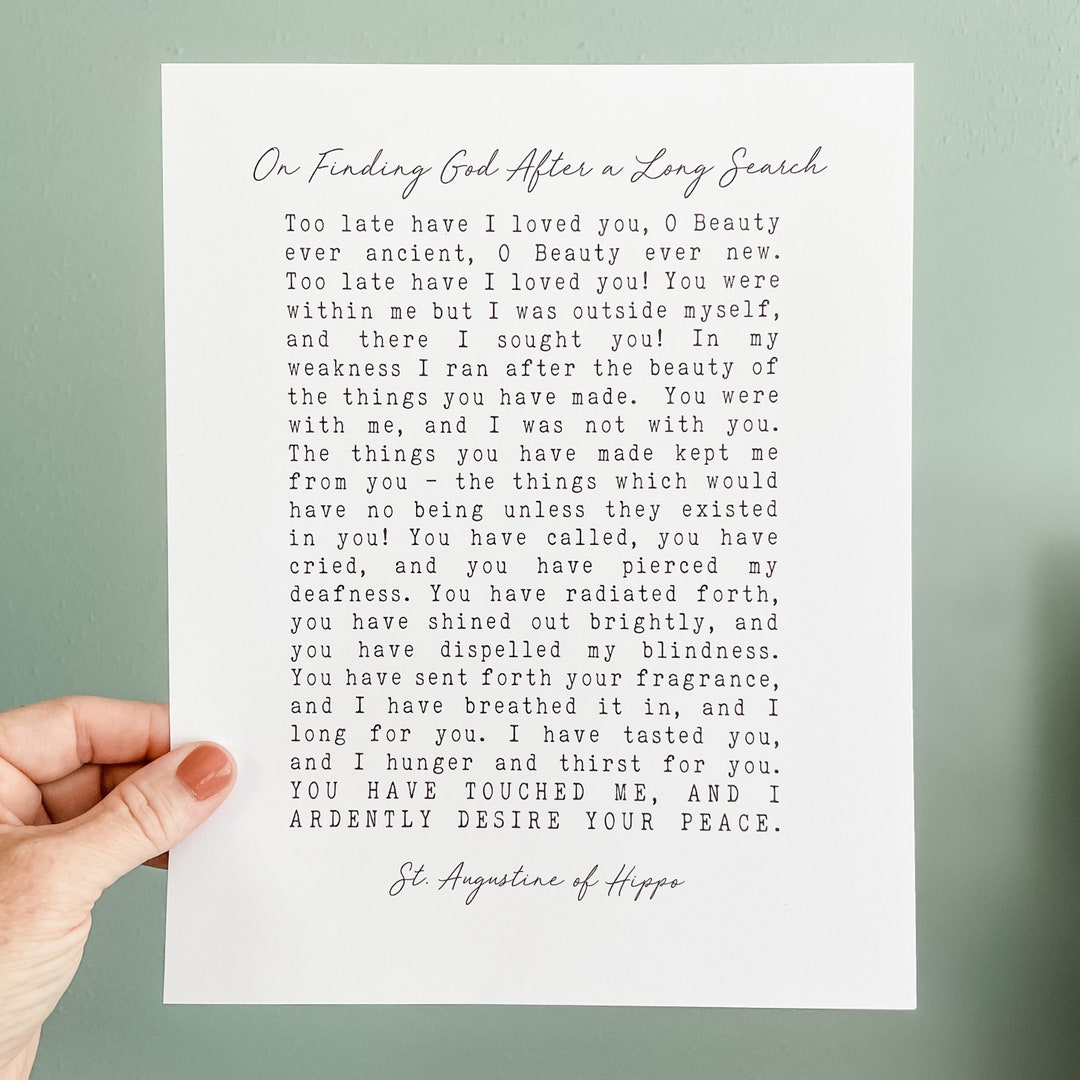 On Finding God After a Long Search
Too late have I loved you, O Beauty
ever ancient, O Beauty ever new.
Too late have I loved you! You were
within me but I was outside myself,
and there I sought you! In my
weakness I ran after the beauty of
the things you have made. You were
with me, and I was not with you.
The things you have made kept me
from you – the things which would
have no being unless they existed
in you! You have called, you have
cried, and you have pierced my
deafness. You have radiated forth,
you have shined out brightly, and
you have dispelled my blindness.
You have sent forth your fragrance,
and I have breathed it in, and I
long for you. I have tasted you,
and I hunger and thirst for you.
YOU HAVE TOUCHED ME, AND I
ARDENTLY DESIRE YOUR PEACE.
St. Augustine of Hippo